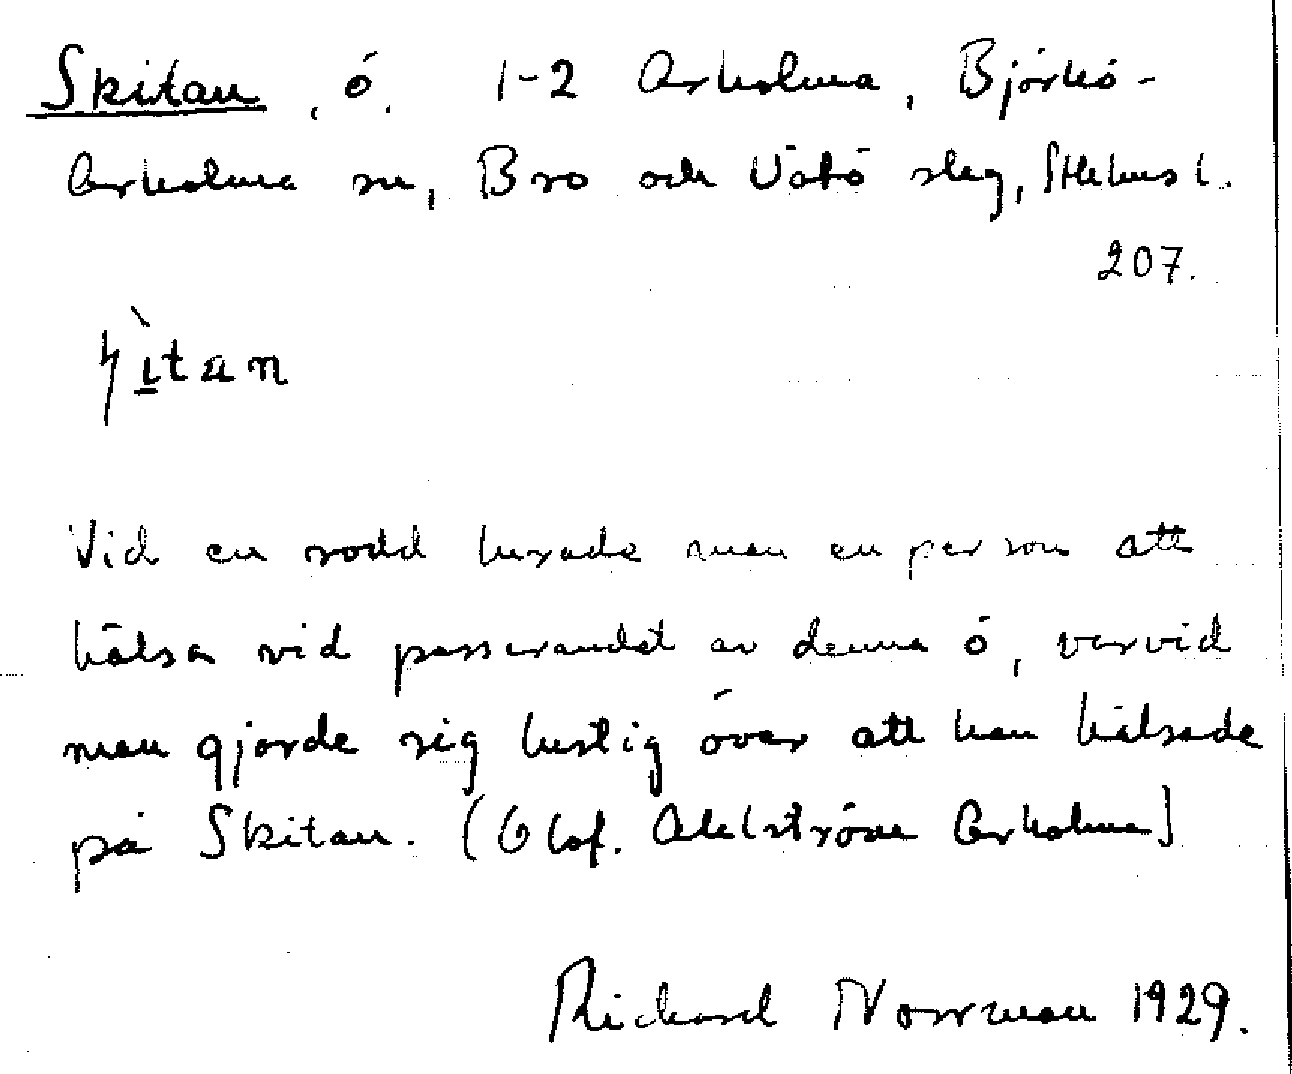 Skitan, ö. 1-2 Arholma, Björkö-
Arholma sn, Bro och Vätö slag, Sthlms l.
207.
Vid en rodd lurade man en person att
hälsa vid passerandet av denna ö, varvid
man gjorde sig lustig över att han hälsade
på Skitan. (Olof. Ahlström Arholma)
Richard Norrman 1929.